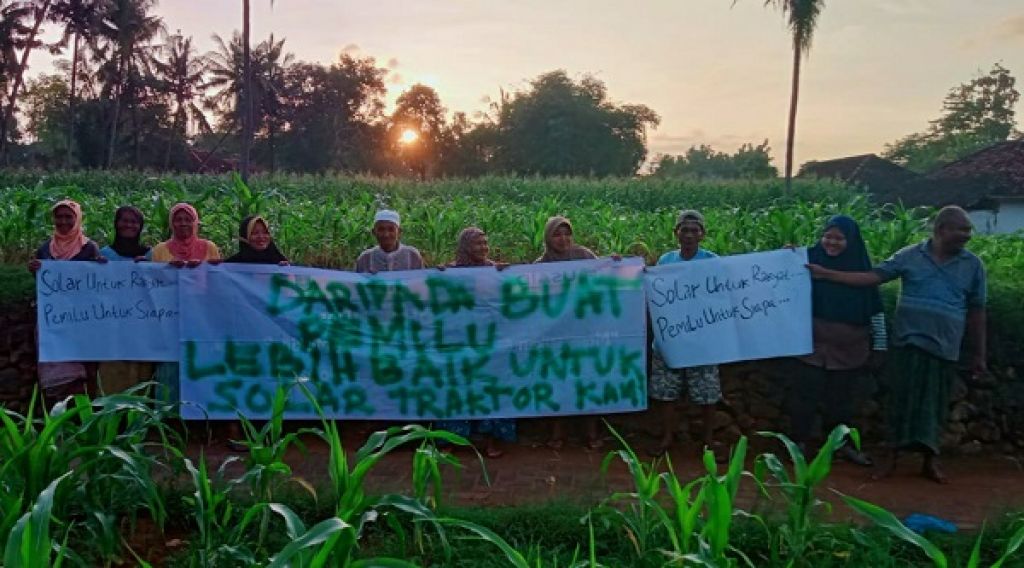 Solar Untuk Rakyat...
Pemilu Untuk Siapa...
DARIPADA BUAT
PEMILU
LEBIH BAIK UNTUK
SOLAR TRAKTOR KAMI
Solar Untuk Rakyat...
Pemilu Untuk Siapa...